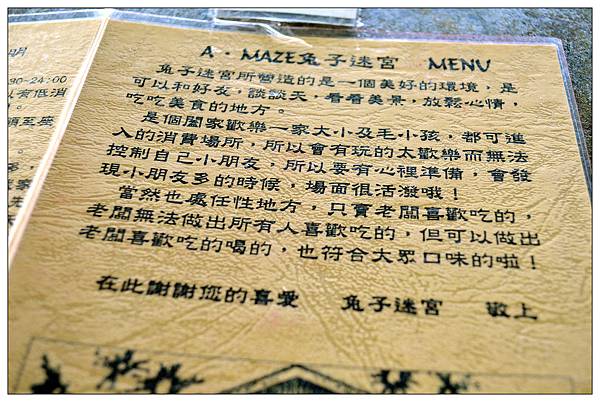 A．MAZE兔子迷宮 MENU
兔子迷宮所營造的是一個美好的環境，是
可以和好友，談談天，看看美景，放鬆心情，
吃吃美食的地方。
是個闔家歡樂一家大小及毛小孩，都可進
入的消費場所，所以會有玩的太歡樂而無法
控制自己小朋友，所以要有心裡準備，會發
現小朋友多的時候，場面很活潑哦！
當然也處任性地方，只賣老闆喜歡吃的，
老闆無法做出所有人喜歡吃的，但可以做出
老闆喜歡吃的喝的，也符合大眾口味的啦！
在此謝謝您的喜愛 兔子迷宮 敬上
明
30-24:00
以有低消